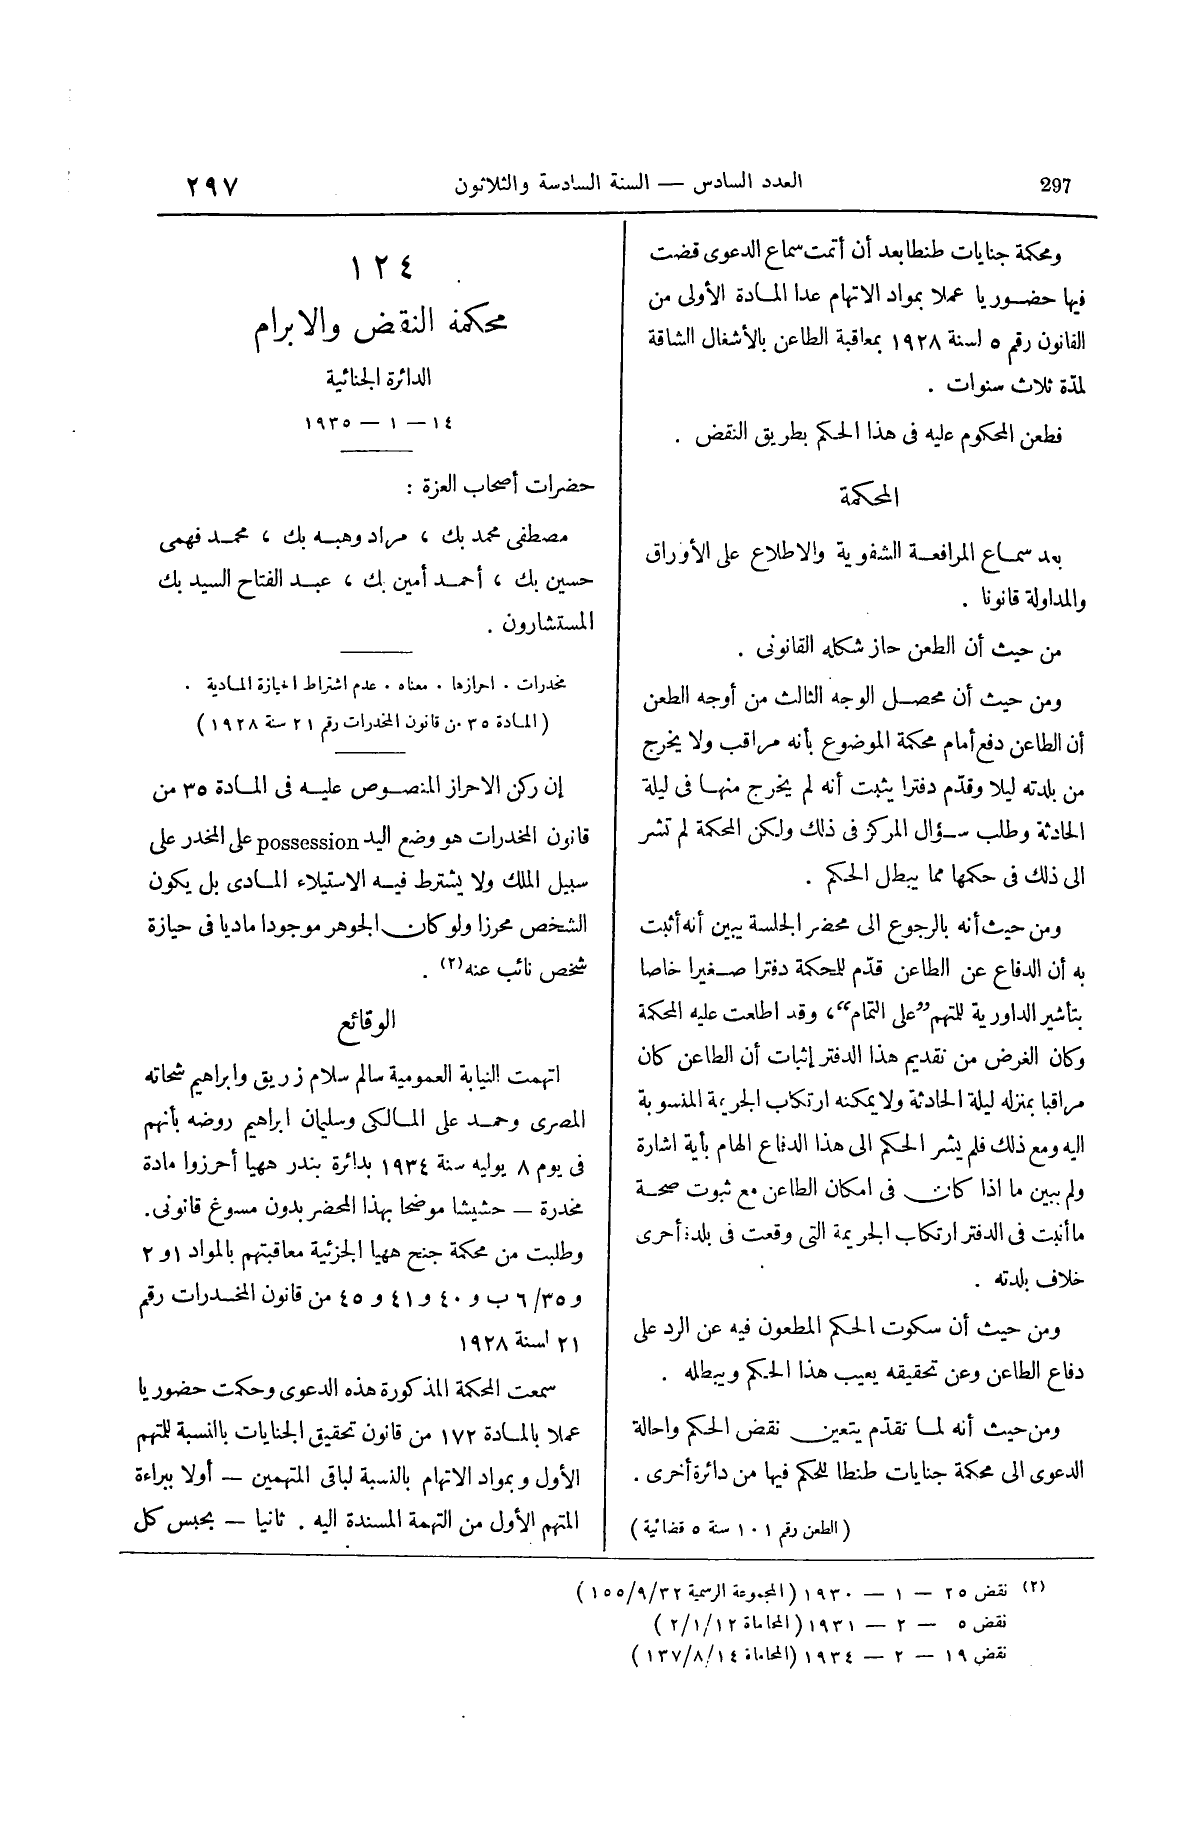 297
العدد السادس — السنة السادسة والثلاثون
٢٩٧
ومحكمة جنايات طنطا بعد أن أتمت سماع الدعوى قضت
فيها حضوريا عملا بمواد الاتهام عدا المادة الأولى من
القانون رقم ٥ لسنة ١٩٢٨ بمعاقبة الطاعن بالأشغال الشاقة
لمدّة ثلاث سنوات .
فطعن المحكوم عليه فى هذا الحكم بطريق النقض .
المحكمة
بعد سماع المرافعة الشفوية والاطلاع على الأوراق
والمداولة قانونا .
من حيث أن الطعن حاز شكله القانونى .
ومن حيث أن محصل الوجه الثالث من أوجه الطعن
أن الطاعن دفع أمام محكمة الموضوع بأنه مراقب ولا يخرج
من بلدته ليلا وقدّم دفترا يثبت أنه لم يخرج منها فى ليلة
الحادثة وطلب سؤال المركز فى ذلك ولكن المحكمة لم تشر
الى ذلك فى حكمها مما يبطل الحكم .
ومن حيث أنه بالرجوع الى محضر الجلسة يبين أنه أثبت
به أن الدفاع عن الطاعن قدّم للمحكمة دفترا صغيرا خاصا
بتأشير الداورية للمتهم ”على التمام“، وقد اطلعت عليه المحكمة
وكان الغرض من تقديم هذا الدفتر إثبات أن الطاعن كان
مراقبا بمنزله ليلة الحادثة ولا يمكنه ارتكاب الجريمة المنسوبة
اليه ومع ذلك فلم يشر الحكم الى هذا الدفاع الهام بأية اشارة
ولم يبين ما اذا كان فى امكان الطاعن مع ثبوت صحة
ما أثبت فى الدفتر ارتكاب الجريمة التى وقعت فى بلدة أخرى
خلاف بلدته .
ومن حيث أن سكوت الحكم المطعون فيه عن الرد على
دفاع الطاعن وعن تحقيقه يعيب هذا الحكم ويبطله .
ومن حيث أنه لما تقدّم يتعين نقض الحكم واحالة
الدعوى الى محكمة جنايات طنطا للحكم فيها من دائرة أخرى .
( الطعن رقم ١٠١ سنة ٥ قضائية )
١٢٤
محكمة النقض والابرام
الدائرة الجنائية
١٤ — ١ — ١٩٣٥
حضرات أصحاب العزة :
مصطفى محمد بك ، مراد وهبه بك ، محمد فهمى
حسين بك ، أحمد أمين بك ، عبد الفتاح السيد بك
المستشارون .
مخدرات . احرازها . معناه . عدم اشتراط الحيازة المادية .
( المادة ٣٥ من قانون المخدرات رقم ٢١ سنة ١٩٢٨ )
إن ركن الاحراز المنصوص عليه فى المادة ٣٥ من
قانون المخدرات هو وضع اليد possession على المخدر على
سبيل الملك ولا يشترط فيه الاستيلاء المادى بل يكون
الشخص محرزا ولو كان الجوهر موجودا ماديا فى حيازة
شخص نائب عنه (٢) .
الوقائع
اتهمت النيابة العمومية سالم سلام زريق وابراهيم شحاته
المصرى وحمد على المالكى وسليمان ابراهيم روضه بأنهم
فى يوم ٨ يوليه سنة ١٩٣٤ بدائرة بندر ههيا أحرزوا مادة
مخدرة — حشيشا موضحا بهذا المحضر بدون مسوغ قانونى .
وطلبت من محكمة جنح ههيا الجزئية معاقبتهم بالمواد ١ و ٢
و ٦/٣٥ ب و ٤٠ و ٤١ و ٤٥ من قانون المخدرات رقم
٢١ لسنة ١٩٢٨
سمعت المحكمة المذكورة هذه الدعوى وحكمت حضوريا
عملا بالمادة ١٧٢ من قانون تحقيق الجنايات بالنسبة للمتهم
الأول وبمواد الاتهام بالنسبة لباقى المتهمين — أولا ببراءة
المتهم الأول من التهمة المسندة اليه . ثانيا — بحبس كل
(٢) نقض ٢٥ — ١ — ١٩٣٠ ( المجموعة الرسمية ١٥٥/٩/٣٢ )
نقض ٥ — ٢ — ١٩٣١ ( المحاماة ٢/١/١٢ )
نقض ١٩ — ٢ — ١٩٣٤ ( المحاماة ١٣٧/٨/١٤ )